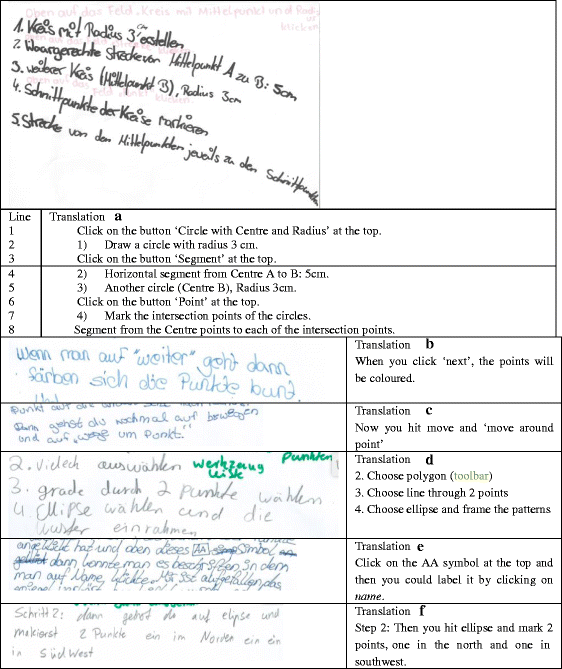 Oben auf das Feld „Kreis mit Mittelpunkt und Radius
klicken
1. Kreis mit Radius 3cm erstellen
2. Waargerechte Strecke von Mittelpunkt A zu B: 5cm
3. weiterer Kreis (Mittelpunkt B), Radius 3cm
4. Schnittpunkte der Kreise markieren
klicken.
5. Strecke von den Mittelpunkten jeweils zu den Schnittpunkten
Line Translation a
1 Click on the button ‘Circle with Centre and Radius’ at the top.
2 1) Draw a circle with radius 3 cm.
3 Click on the button ‘Segment’ at the top.
4 2) Horizontal segment from Centre A to B: 5cm.
5 3) Another circle (Centre B), Radius 3cm.
6 Click on the button ‘Point’ at the top.
7 4) Mark the intersection points of the circles.
8 Segment from the Centre points to each of the intersection points.
Wenn man auf "weiter" geht dann
färben sich die Punkte bunt.
Translation b
When you click ‘next’, the points will
be coloured.
Punkt auf die
Dann gehst du nochmal auf bewegen
und auf um Punkt."
Translation c
Now you hit move and ‘move around
point’
Punkten
2. Vieleck auswählen Werkzeug
liste
3. grade durch 2 Punkte wählen
4. Ellipse wählen und die
Muster einrahmen
Translation d
2. Choose polygon (toolbar)
3. Choose line through 2 points
4. Choose ellipse and frame the patterns
angeklickt hat und oben dieses AA Symbol,
dann konnte man es beschriften in dem
man auf Name klickte. Mir ist aufgefallen das
Translation e
Click on the AA symbol at the top and
then you could label it by clicking on
name.
Schritt 2: dann gehst du auf elipse und
makierst 2 Punkte ein im Norden ein ein
in südwest
Translation f
Step 2: Then you hit ellipse and mark 2
points, one in the north and one in
southwest.